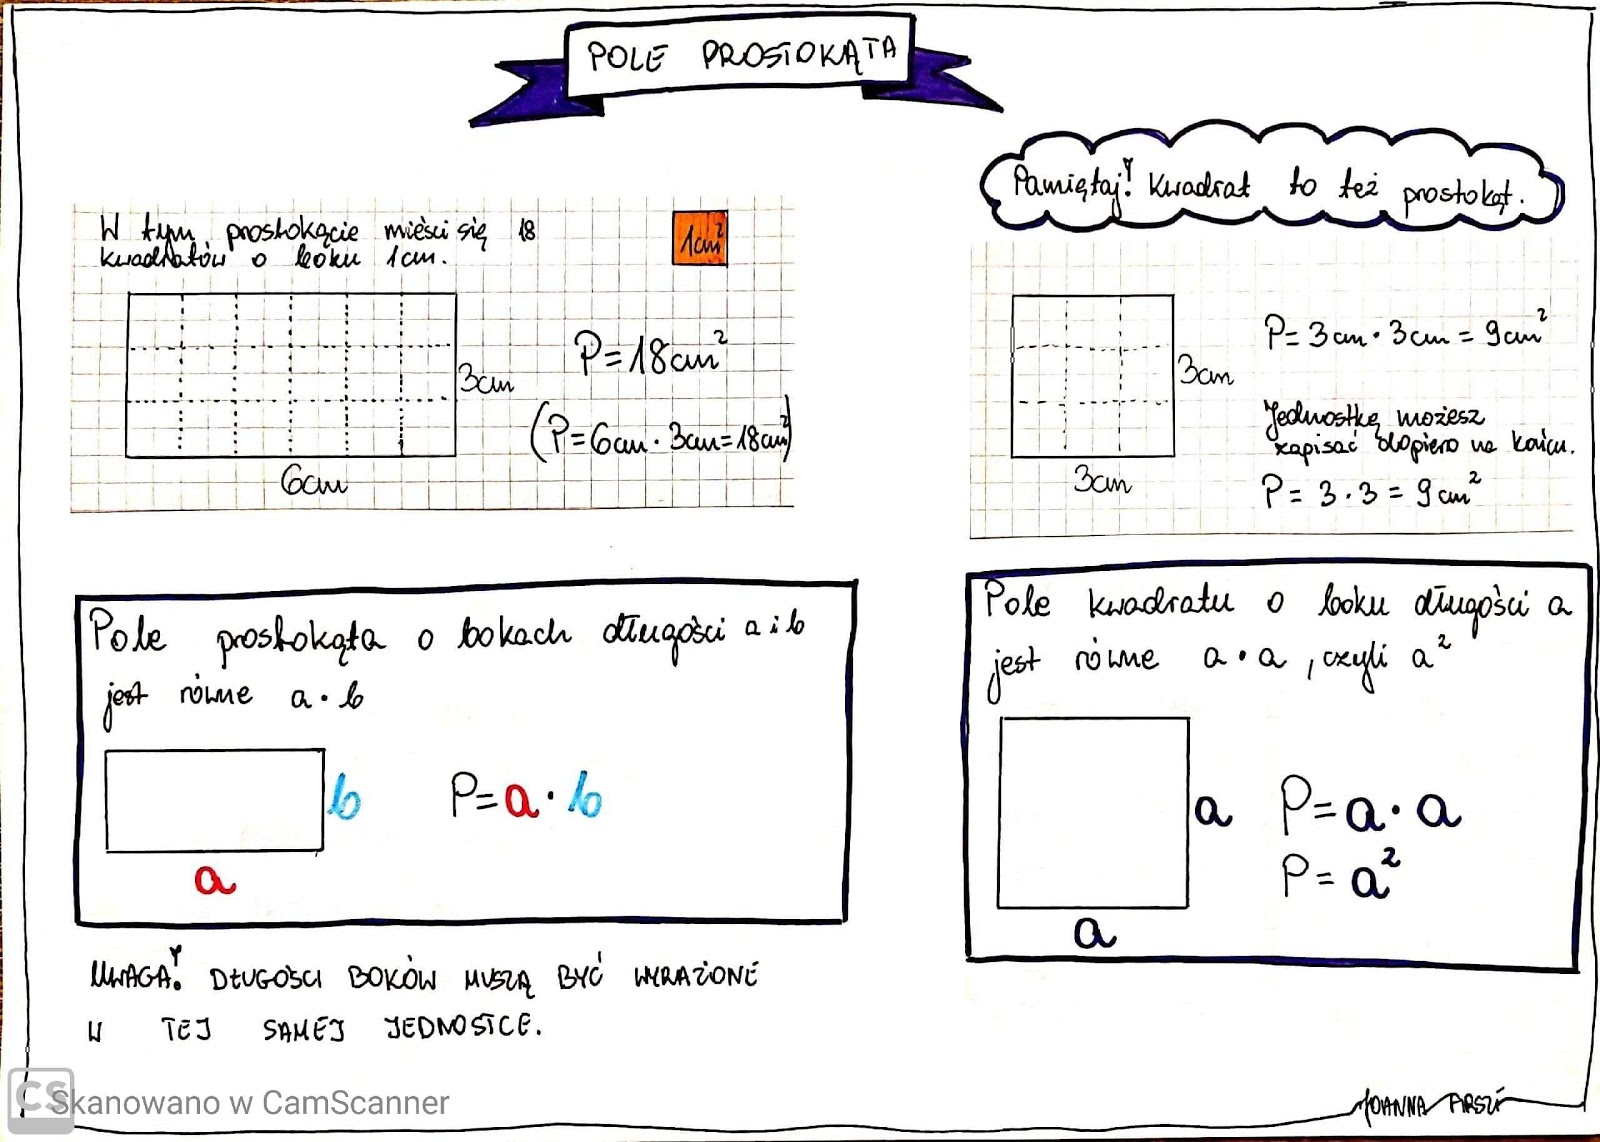 POLE PROSTOKĄTA
Pamiętaj! Kwadrat to też prostokąt.
W tym prostokącie mieści się 18
kwadratów o boku 1cm.
1cm²
3cm
6cm
P=18cm²
(P=6cm·3cm=18cm²)
3cm
3cm
P=3cm·3cm=9cm²
Jednostkę możesz
zapisać dopiero na końcu.
P=3·3=9cm²
Pole prostokąta o bokach długości a i b
jest równe a·b
b
a
P=a·b
Pole kwadratu o boku długości a
jest równe a·a, czyli a²
a
a
P=a·a
P=a²
UWAGA! DŁUGOŚCI BOKÓW MUSZĄ BYĆ WYRAŻONE
W TEJ SAMEJ JEDNOSTCE.
CS Skanowano w CamScanner
JOANNA